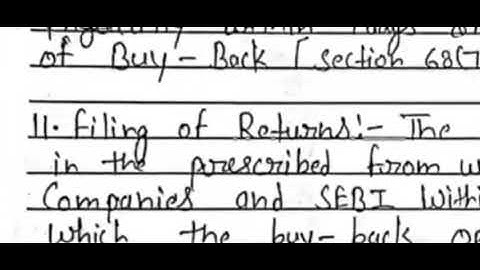 of Buy-Back [section 68(7
11. Filing of Returns:- The
in the prescribed from
Companies and SEBI Withi
which the buy-back